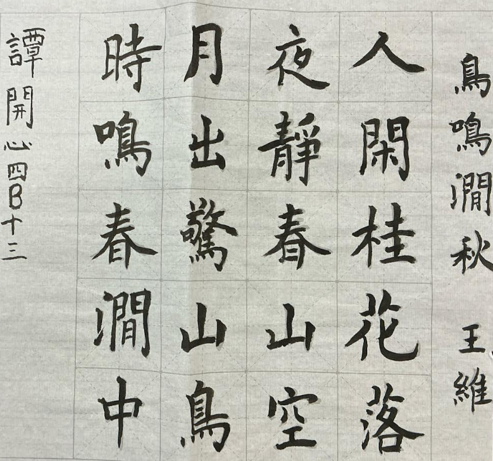 鳥鳴澗秋 王維
人閑桂花落
夜靜春山空
月出驚山鳥
時鳴春澗中
譚開心四B十三